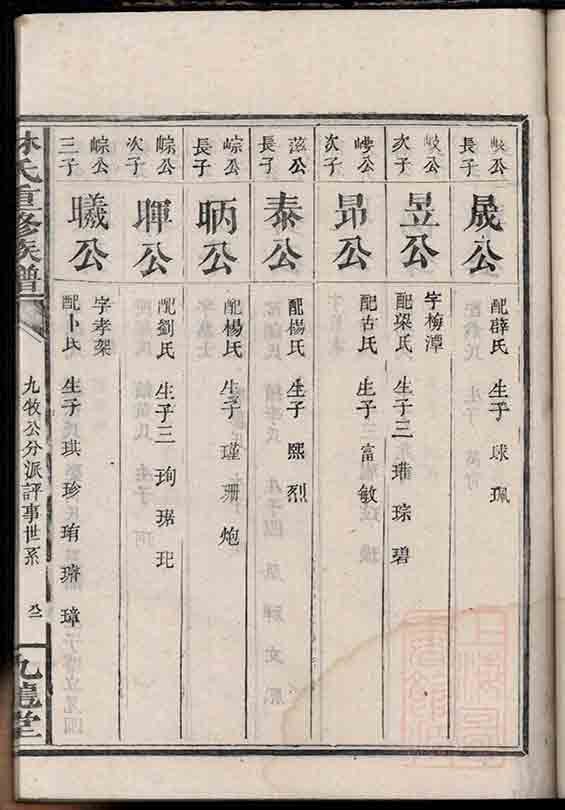 岐公
長子
晟公
配薛氏 生子 球 珮
岐公
次子
昱公
字梅潭
配梁氏 生子三 琮 碧
次子
昂公
配古氏 生子 富 敏
長子
泰公
配楊氏 生子 熙 烈
崇公
長子
昞公
配楊氏 生子 瑾 珊 炮
崇公
次子
暉公
配劉氏 生子三 珣 琚 玭
崇公
三子
曦公
字孝架
配卜氏 生子 琪 珍 珛 璋
林氏重修族譜
九牧公分派評事世系
九龍堂